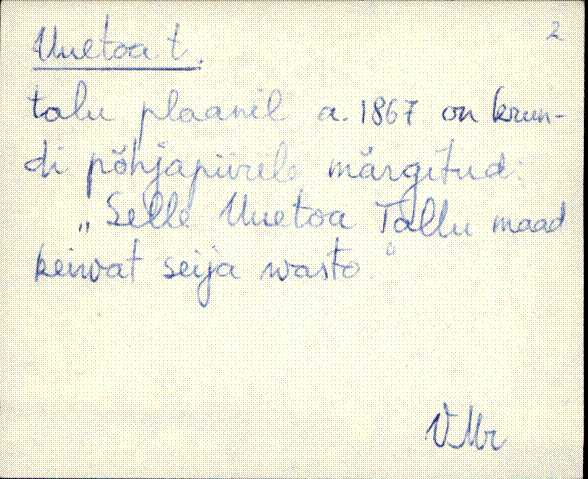 2
Uuetoa t.
talu plaanil a. 1867 on krun-
di põhjapiirele märgitud:
„Selle Uuetoa Tallu maad
keiwat seija wasto."
VMr